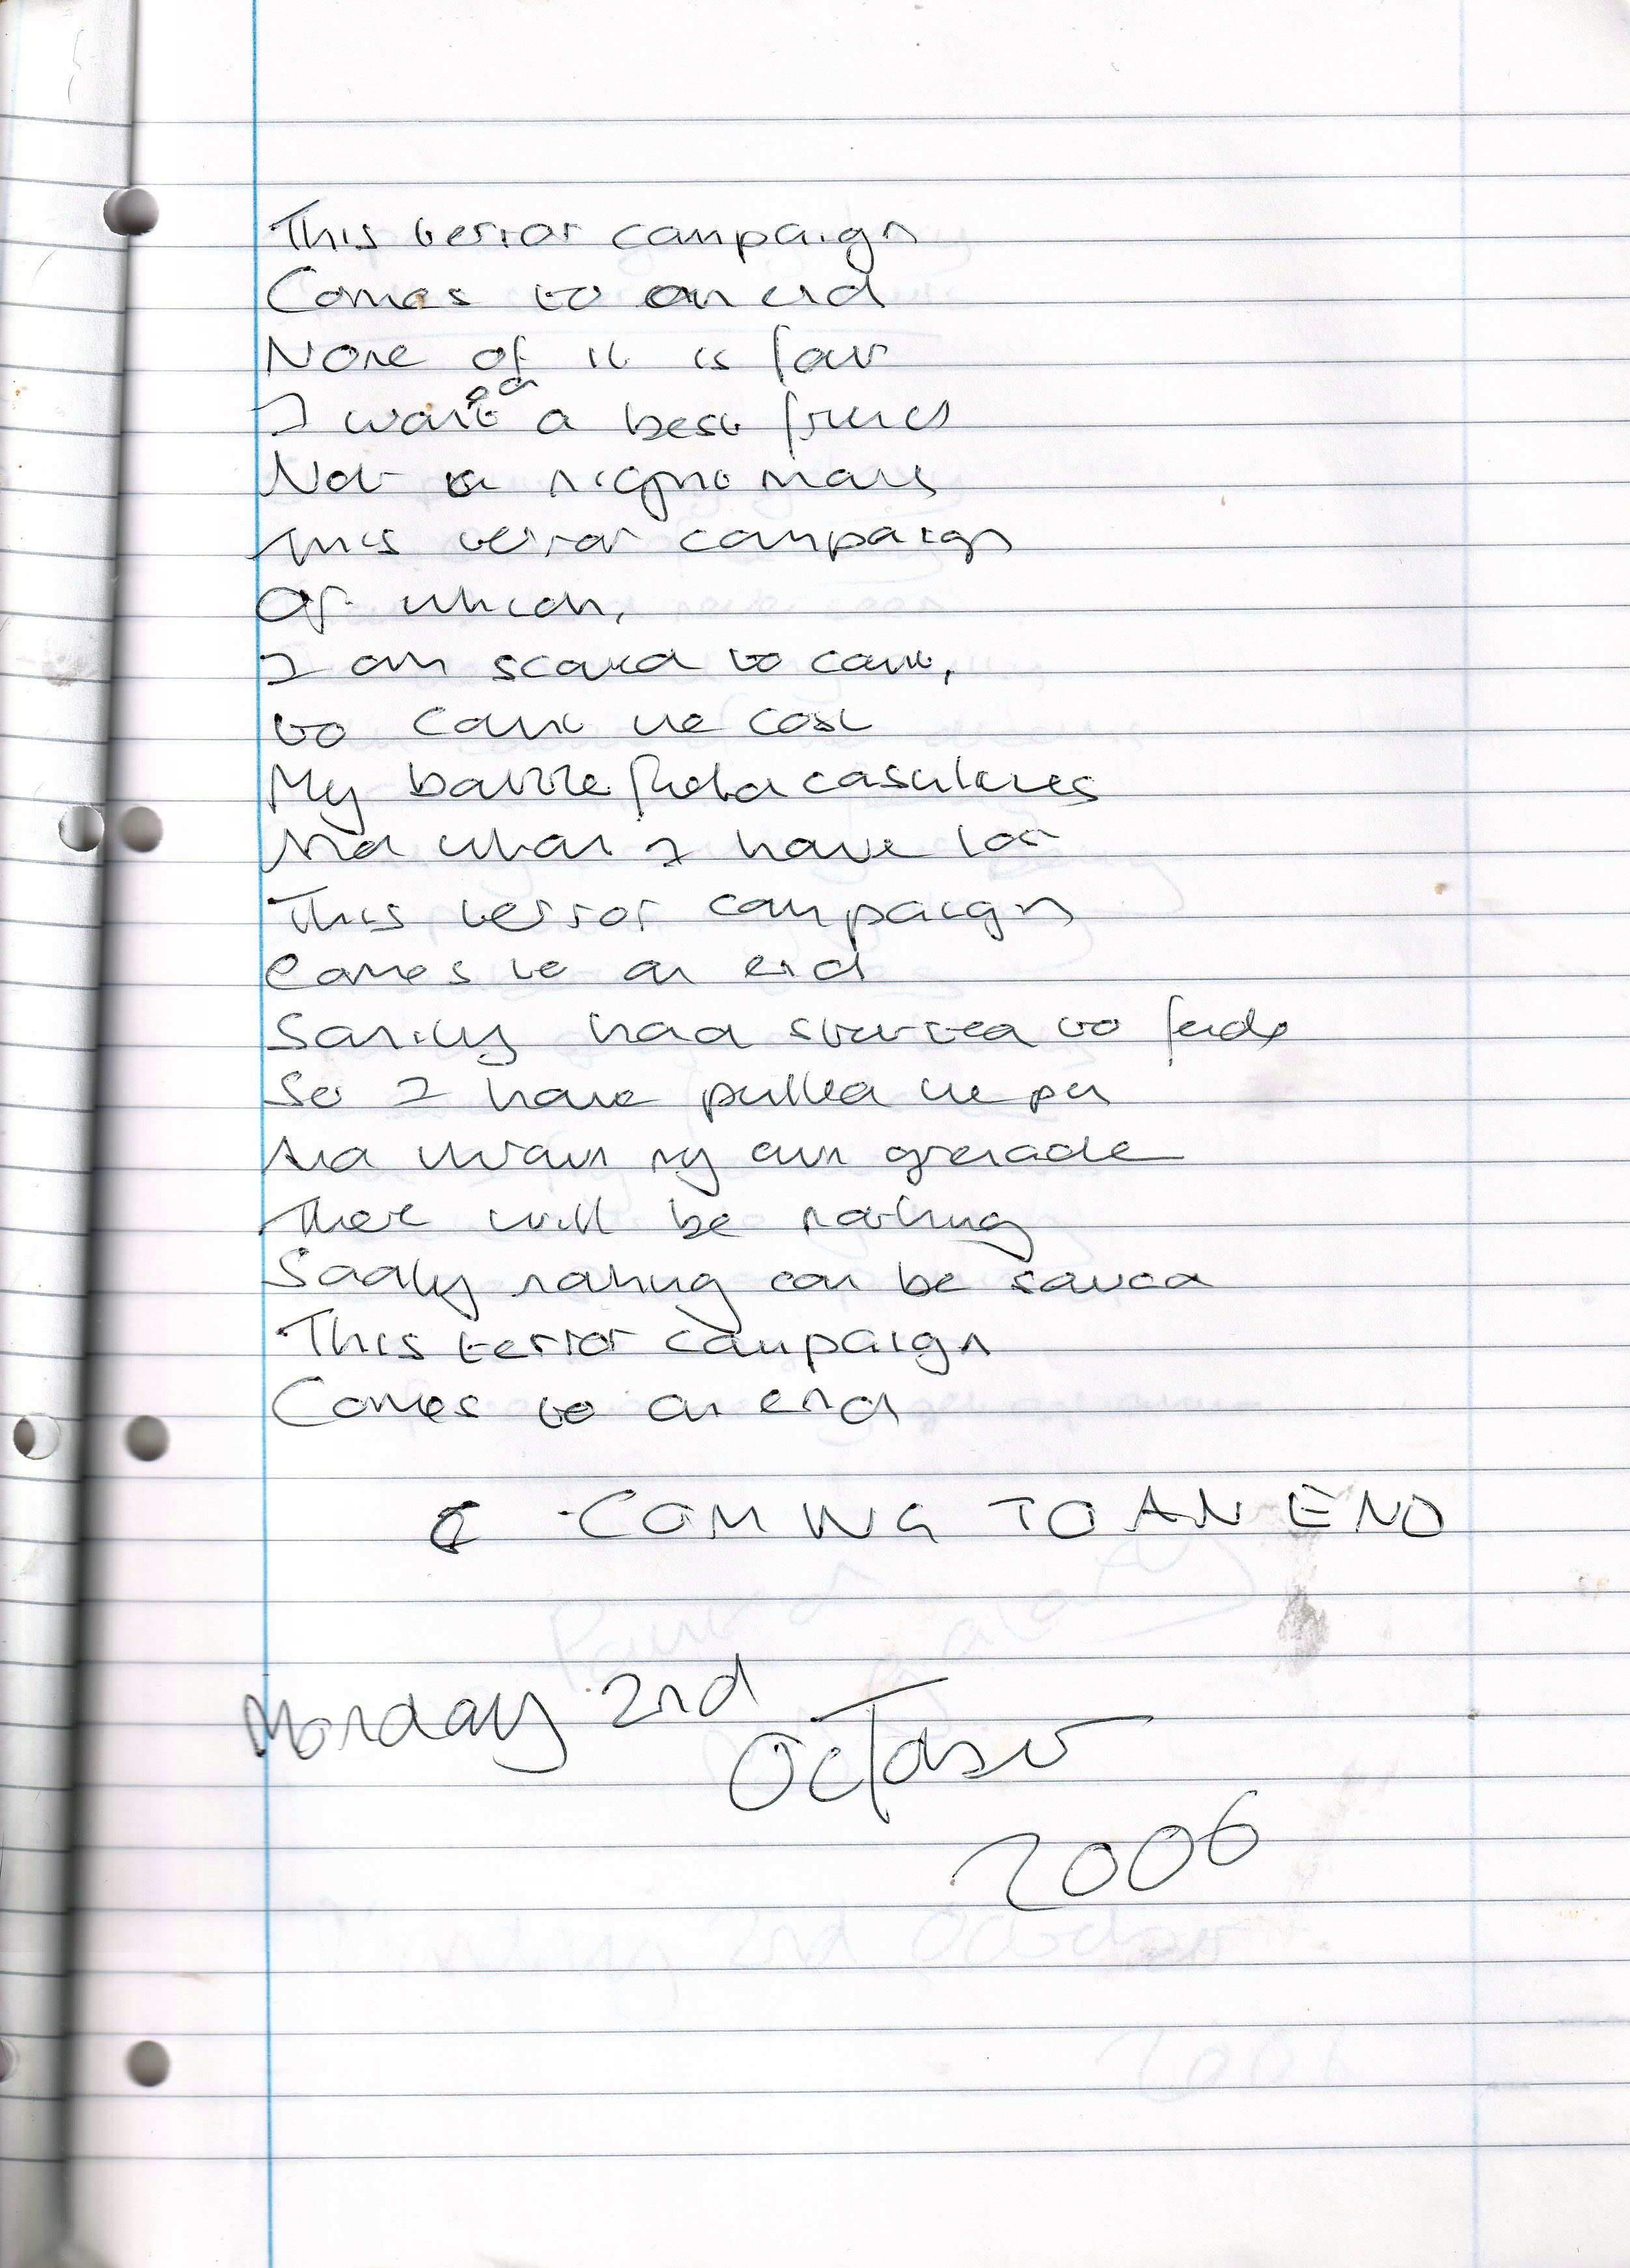 This terror campaign
Comes to an end
None of it is fair
I want a best friend
Not a nightmare
This terror campaign
Of which,
I am scared to count,
to count the cost
My battlefield casulties
And what I have lost
This terror campaign
Comes to an end
Sanity had started to fade
So I have pulled the pin
And thrown my own grenade
There will be nothing
Sadly nothing can be saved
This terror campaign
Comes to an end
COMING TO AN END
Monday 2nd
October
2006